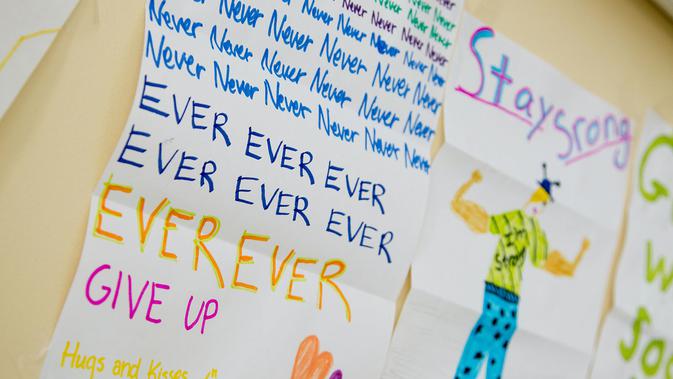 Never Never
Never Never Never
Never Never Never Never
Never Never Never Never
Never Never Never Never Never
Never Never Never Never Never Never
Never Never Never Never Never Never
EVER EVER EVER
EVER EVER EVER
EVER EVER
GIVE UP
Hugs and Kisses
Stay srong
I'm
strong